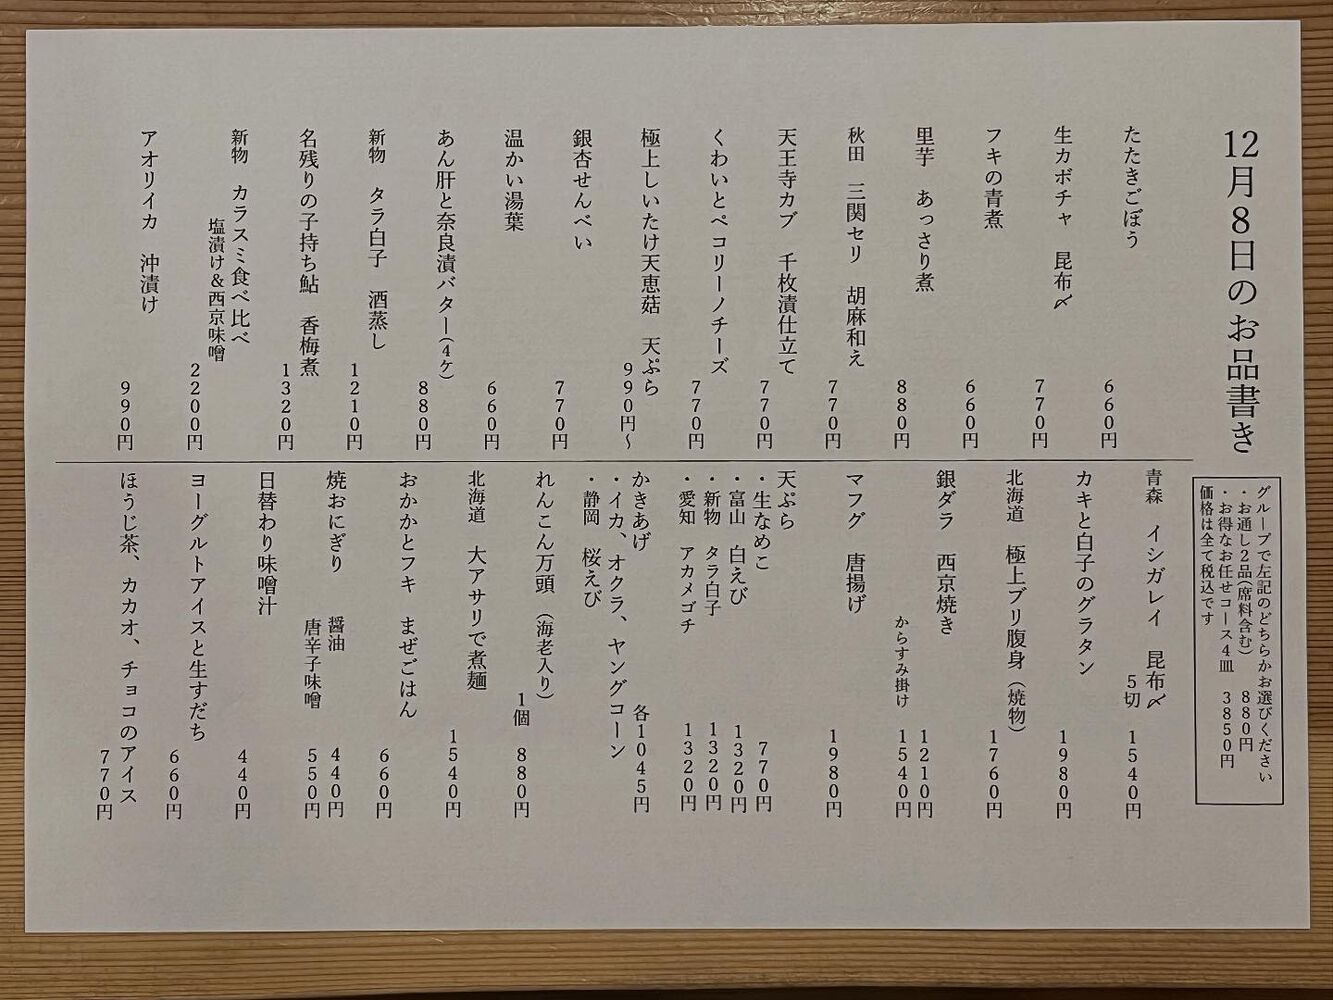 12月8日のお品書き
グループで左記のどちらかお選びください
・お通し2品(席料含む) 880円
・お得なお任せコース4皿 3850円
価格は全て税込です
たたきごぼう 660円
生カボチャ 昆布〆 770円
フキの青煮 660円
里芋 あっさり煮 880円
秋田 三関セリ 胡麻和え 770円
天王寺カブ 千枚漬仕立て 770円
くわいとペコリーノチーズ 770円
極上しいたけ天恵菇 天ぷら 990円〜
銀杏せんべい 770円
温かい湯葉 660円
あん肝と奈良漬バター(4ケ) 880円
新物 タラ白子 酒蒸し 1210円
名残りの子持ち鮎 香梅煮 1320円
新物 カラスミ食べ比べ
塩漬け&西京味噌 2200円
アオリイカ 沖漬け 990円
青森 イシガレイ 昆布〆
5切 1540円
カキと白子のグラタン 1980円
北海道 極上ブリ腹身(焼物) 1760円
銀ダラ 西京焼き 1210円
からすみ掛け 1540円
マフグ 唐揚げ 1980円
天ぷら
・生なめこ 770円
・富山 白えび 1320円
・新物 タラ白子 1320円
・愛知 アカメゴチ 1320円
かきあげ 各1045円
・イカ、オクラ、ヤングコーン
・静岡 桜えび
れんこん万頭 (海老入り)
1個 880円
北海道 大アサリで煮麺 1540円
おかかとフキ まぜごはん 660円
焼おにぎり 醤油 440円
唐辛子味噌 550円
日替わり味噌汁 440円
ヨーグルトアイスと生すだち 660円
ほうじ茶、カカオ、チョコのアイス 770円